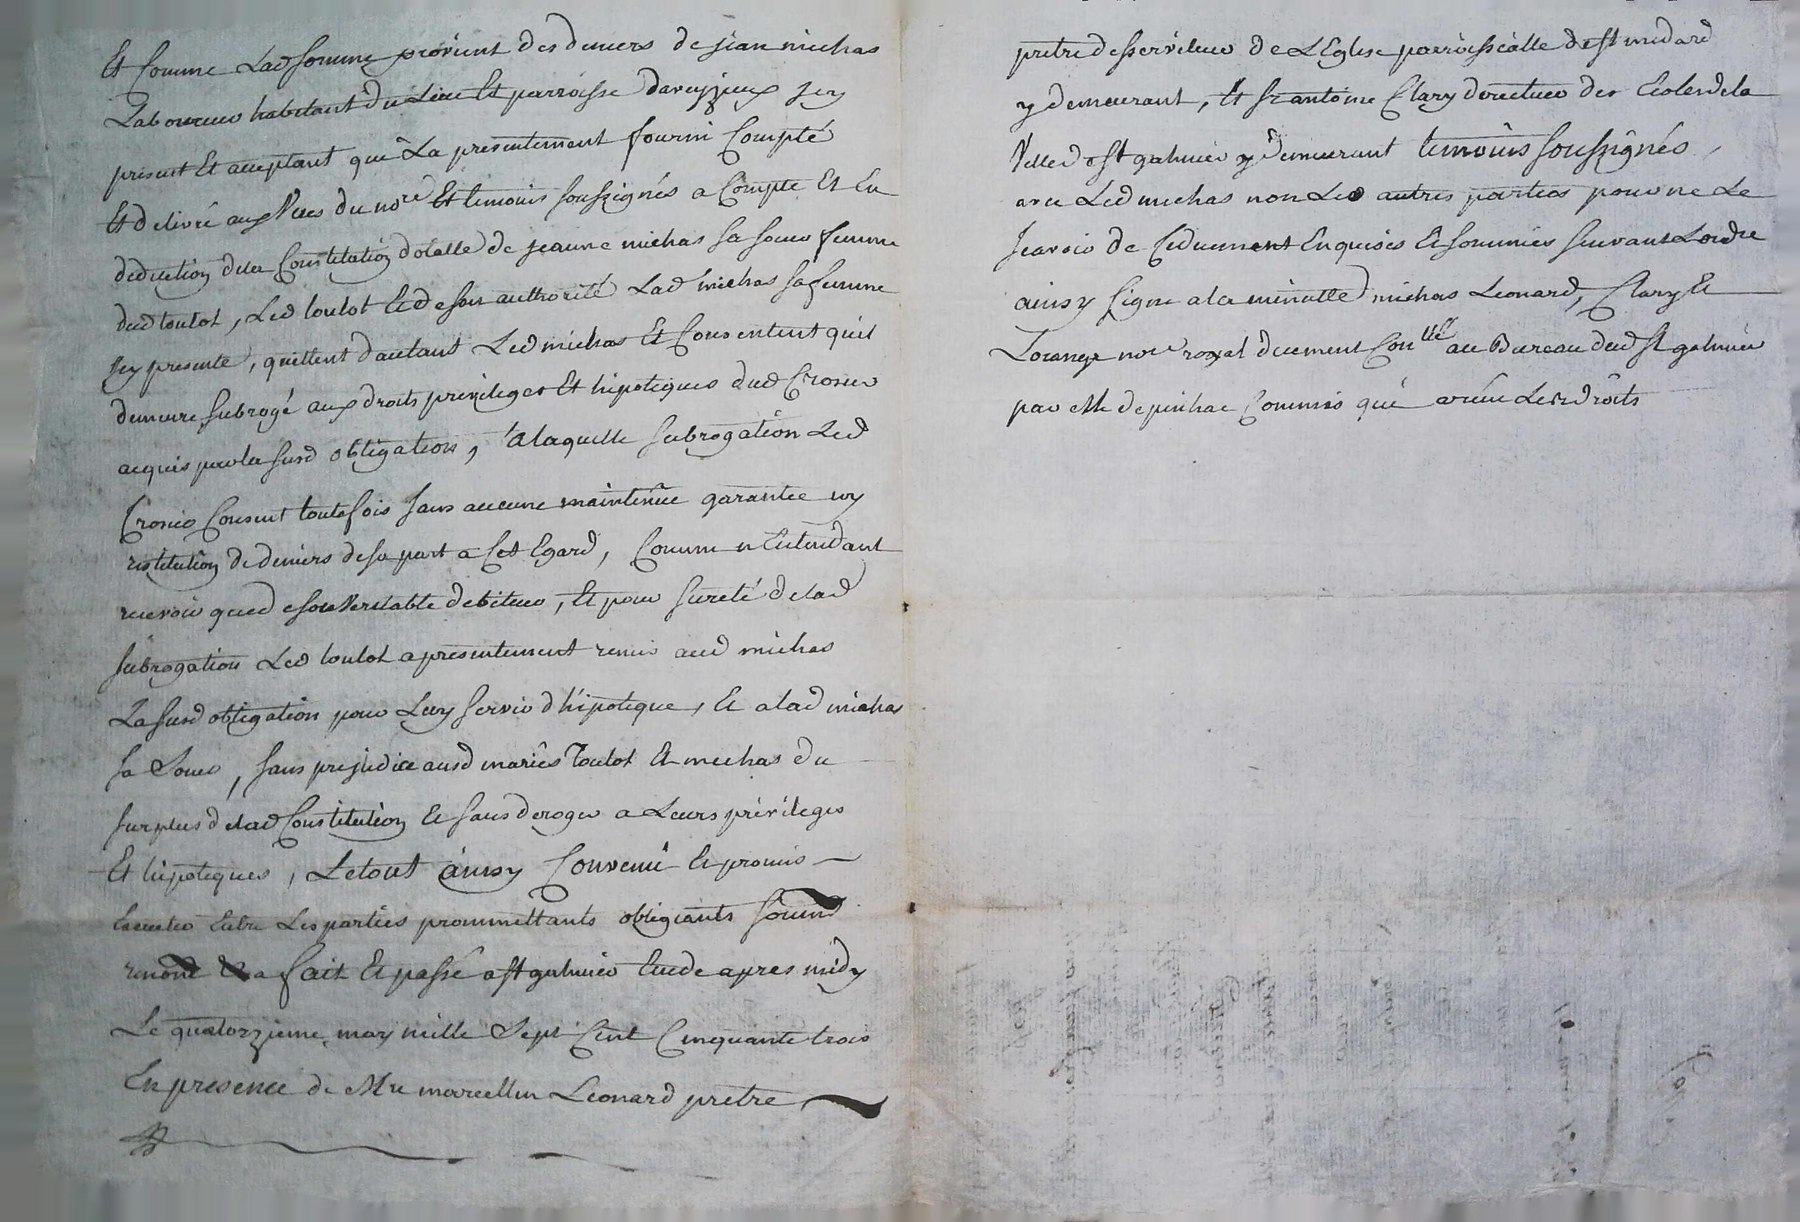 Et Comme Lad somme provient des deniers de jean michas
Laboureur habitant du Lieu Et parroisse daveyzieux jcy
present Et aceptant qui La presentement fourni Compté
Et delivré aux Vues du nore Et temoins soussignés a Compte Et En
deduction dela Constitution dotalle de jeanne michas sa soeur femme
dud toulot, Led toulot Et de son authorité Lad michas sa femme
jcy presente, quittent dautant Led michas Et Consentent quil
demeure subrogé aux droits privileges Et hipoteques dud Crosier
acquis par la susd obligation, a laquelle subrogation Led
Crosier Consent toutefois sans aucune maintenüe garantie ny
restitution de deniers de sa part a Cet Egard, Comme n'Entendant
recevoir que de son Veritable debiteur, Et pour sureté de lad
subrogation Led toulot a presentement remis aud michas
La susd obligation pour Luy servir d'hipoteque, Et a lad michas
sa soeur, sans prejudice ausd mariés Toulot Et michas du
surplus de lad Constitution Et sans deroger a Leurs privileges
Et hipoteques, Le tout ainsy Convenu Et promis
Executer Entre Les parties prommettants obligeants soumd
renond &a fait Et passé a st galmier Etude apres midy
Le quatorzieme may mille Sept Cent Cinquante trois
En presence de Mre marcellin Leonard pretre
pretre desserviteur de L'Eglise parroissialle de st medard
y demeurant, Et sr antoine Clary directeur des Ecoles de la
Ville de st galmier y demeurant temoins soussignés
avec Led michas non Les autres parties pour ne Le
sçavoir de Ce duement Enquises Et sommées suivant Lordre
ainsy signé a la minutte michas Leonard, Clary Et
Lorange nore royal duement Conllé au Bureau dud st galmier
par Me depinhac Commis qui a reçu Les droits